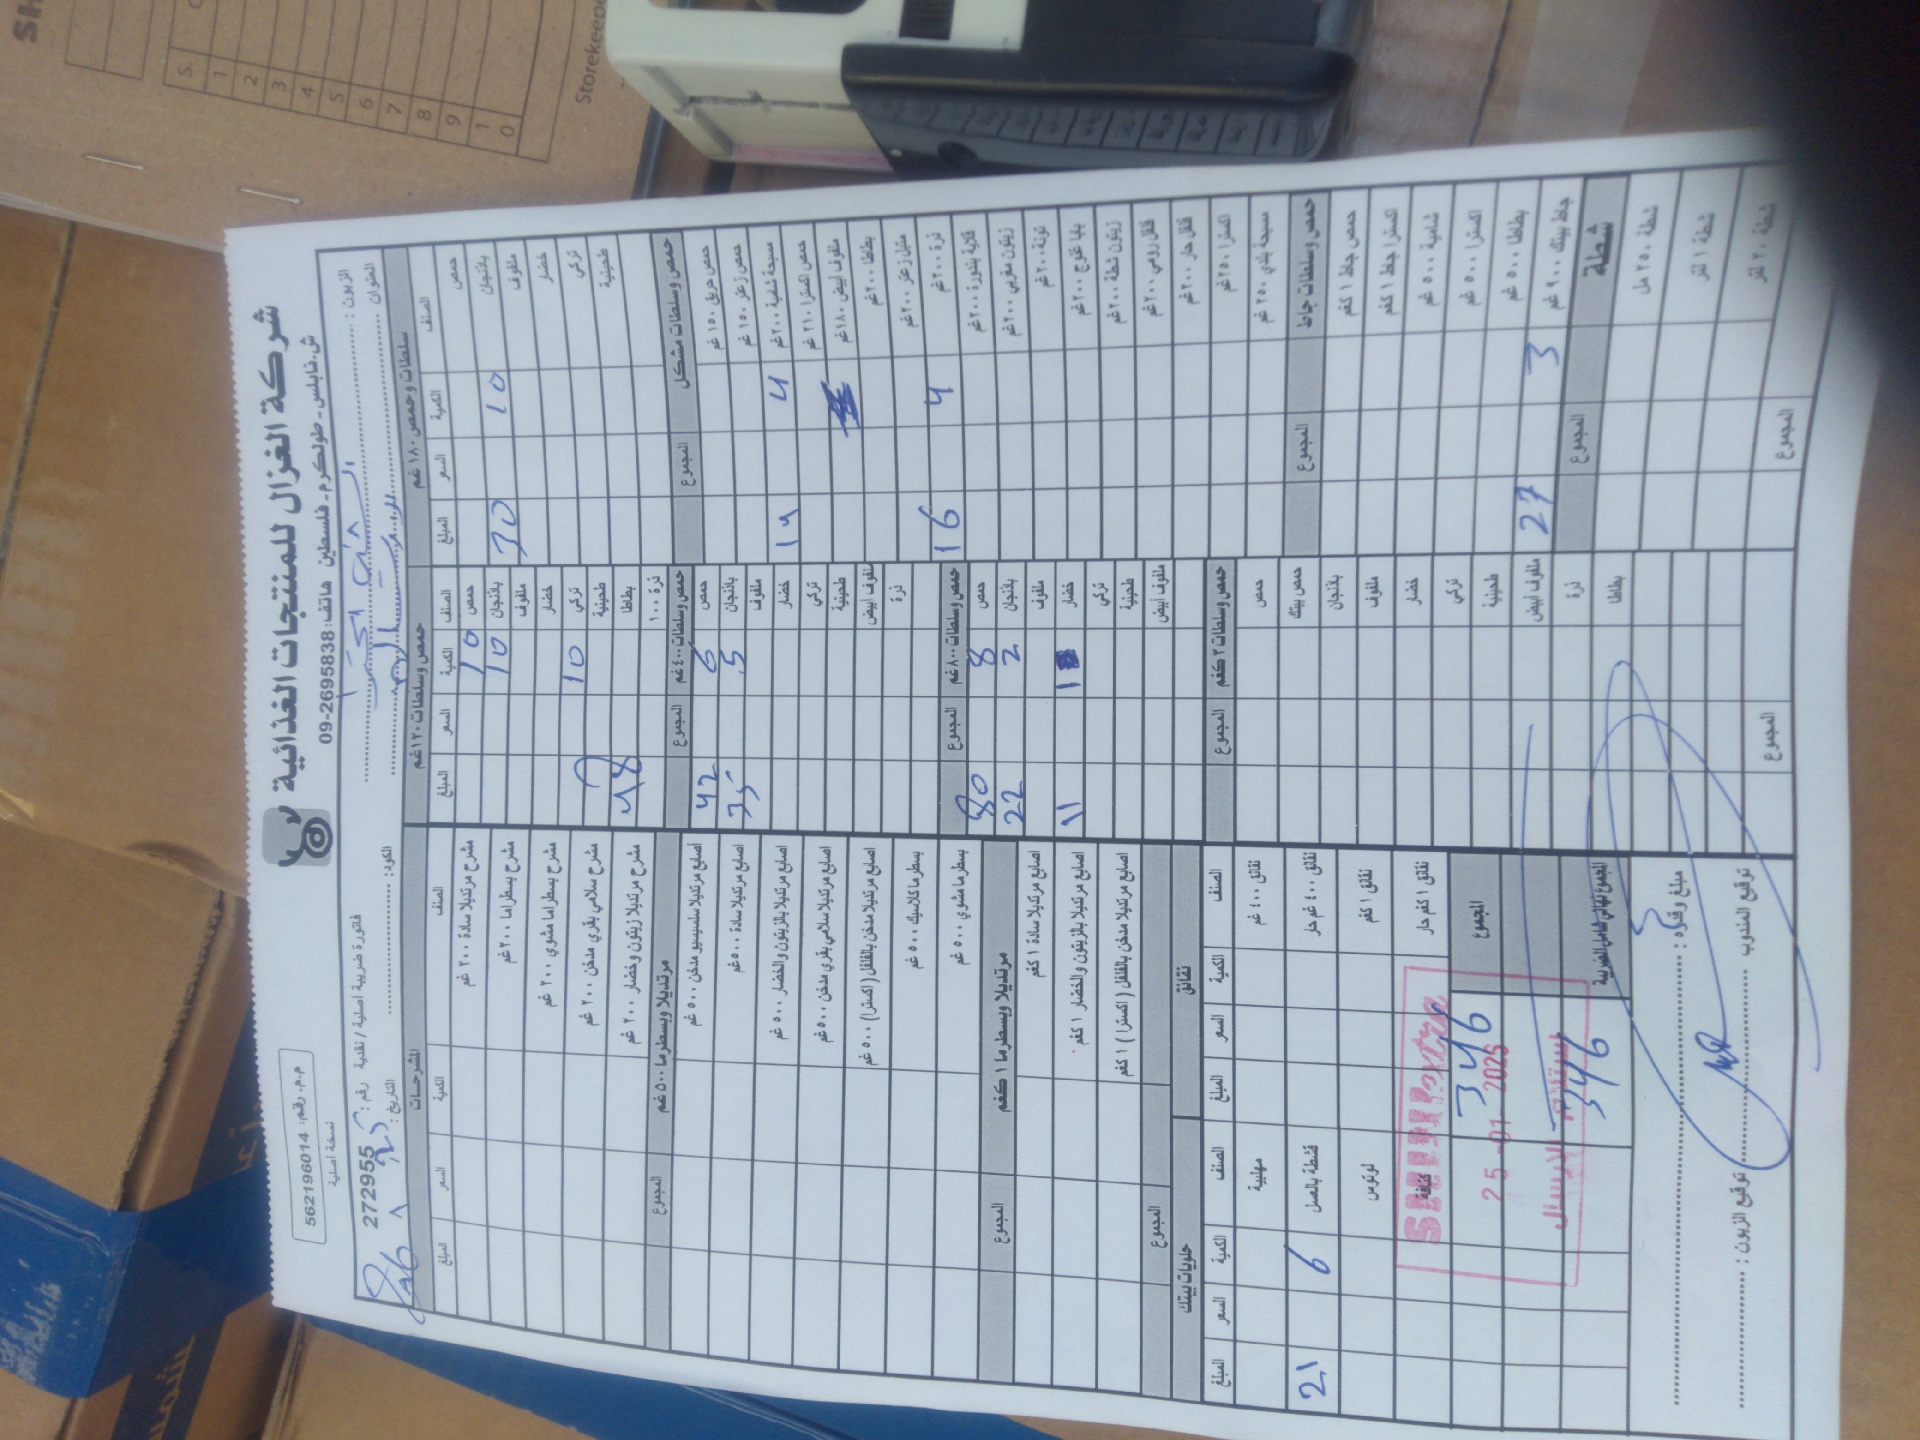 شركة الغزال للمنتجات الغذائية
ش.نابلس - طولكرم - فلسطين هاتف: 09-2695838
م.م. رقم: 562196014
نسخة اصلية
فاتورة ضريبية اصلية / نقدية رقم: 272955
الزبون:
العنوان
الكود:
التاريخ:
سلطات و حمص ١٨٠ غم
الصنف الكمية السعر المبلغ
حمص
باذنجان 10 30
ملفوف
خضار
تركي
طحينية
حمص وسلطات مشكل المجموع
حمص حريق ١٥٠ غم
حمص زعتر ١٥٠ غم
مسبحة شامية ٢٠٠ غم 4 14
حمص اكسترا ٢١٠ غم
ملفوف ابيض ١٨٠ غم
بطاطا ٢٠٠ غم
متبل زعتر ٢٠٠ غم
ذرة ٢٠٠ غم 4 16
قلاية بندورة ٢٠٠ غم
زيتون مغربي ٢٠٠ غم
تونة ٢٠٠ غم
بابا غنوج ٢٠٠ غم
زيتون شطة ٢٠٠ غم
فلفل رومي ٢٠٠ غم
فلفل حار ٢٠٠ غم
اكسترا ٢٥٠ غم
مسبحة بلدي ٢٥٠ غم
حمص وسلطات جاط المجموع
حمص جاط ١ كغم
اكسترا جاط ١ كغم
شامية ٥٠٠ غم
اكسترا ٥٠٠ غم
بطاطا ٥٠٠ غم
جاط بيتك ٩٠٠ غم 3 27
شطة المجموع
شطة ٢٥٠ مل
شطة ١ لتر
شطة ٢٠ لتر
المجموع
حمص وسلطات ١٢٠ غم
الصنف الكمية السعر المبلغ
حمص 10
باذنجان 10
ملفوف
خضار
تركي 10
طحينية
بطاطا 48
ذرة ١٠٠
حمص وسلطات ٤٠٠ غم المجموع
حمص 6 42
باذنجان 5 35
ملفوف
خضار
تركي
طحينية
ملفوف ابيض
ذرة
حمص وسلطات ٨٠٠ غم المجموع
حمص 8 80
باذنجان 2 22
ملفوف
خضار 1 11
تركي
طحينية
ملفوف ابيض
حمص وسلطات ٣ كغم المجموع
حمص
حمص بيتك
باذنجان
ملفوف
خضار
تركي
طحينية
ملفوف ابيض
ذرة
بطاطا
المجموع
المشرحات
الصنف الكمية السعر المبلغ
مشرح مرتديلا سادة ٢٠٠ غم
مشرح بسطراما ٢٠٠ غم
مشرح بسطراما مشوي ٢٠٠ غم
مشرح سلامي بقري مدخن ٢٠٠ غم
مشرح مرتديلا زيتون وخضار ٢٠٠ غم
مرتديلا وبسطرما ٥٠٠ غم المجموع
اصابع مرتديلا سلسيسيو مدخن ٥٠٠ غم
اصابع مرتديلا سادة ٥٠٠ غم
اصابع مرتديلا بالزيتون والخضار ٥٠٠ غم
اصابع مرتديلا سلامي بقري مدخن ٥٠٠ غم
اصابع مرتديلا مدخن بالفلفل (اكسترا) ٥٠٠ غم
بسطرما كلاسيك ٥٠٠ غم
بسطرما مشوي ٥٠٠ غم
مرتديلا وبسطرما ١ كغم المجموع
اصابع مرتديلا سادة ١ كغم
اصابع مرتديلا بالزيتون والخضار ١ كغم
اصابع مرتديلا مدخن بالفلفل (اكسترا) ١ كغم
المجموع
نقانق حلويات بيتك
الصنف الكمية السعر المبلغ الصنف الكمية السعر المبلغ
نقانق ٤٠٠ غم مهلبية
نقانق ٤٠٠ غم حار قشطة بالعسل 6 21
نقانق ١ كغم لوتس
نقانق ١ كغم حار
المجموع 346
المجموع النهائي شامل الضريبة 346
SHINI Pextra
25-01-2025
استلام الارسال
مبلغ وقدره:
توقيع المندوب
توقيع الزبون:
S.
1
2
3
4
5
6
7
8
9
10
Storekeeper